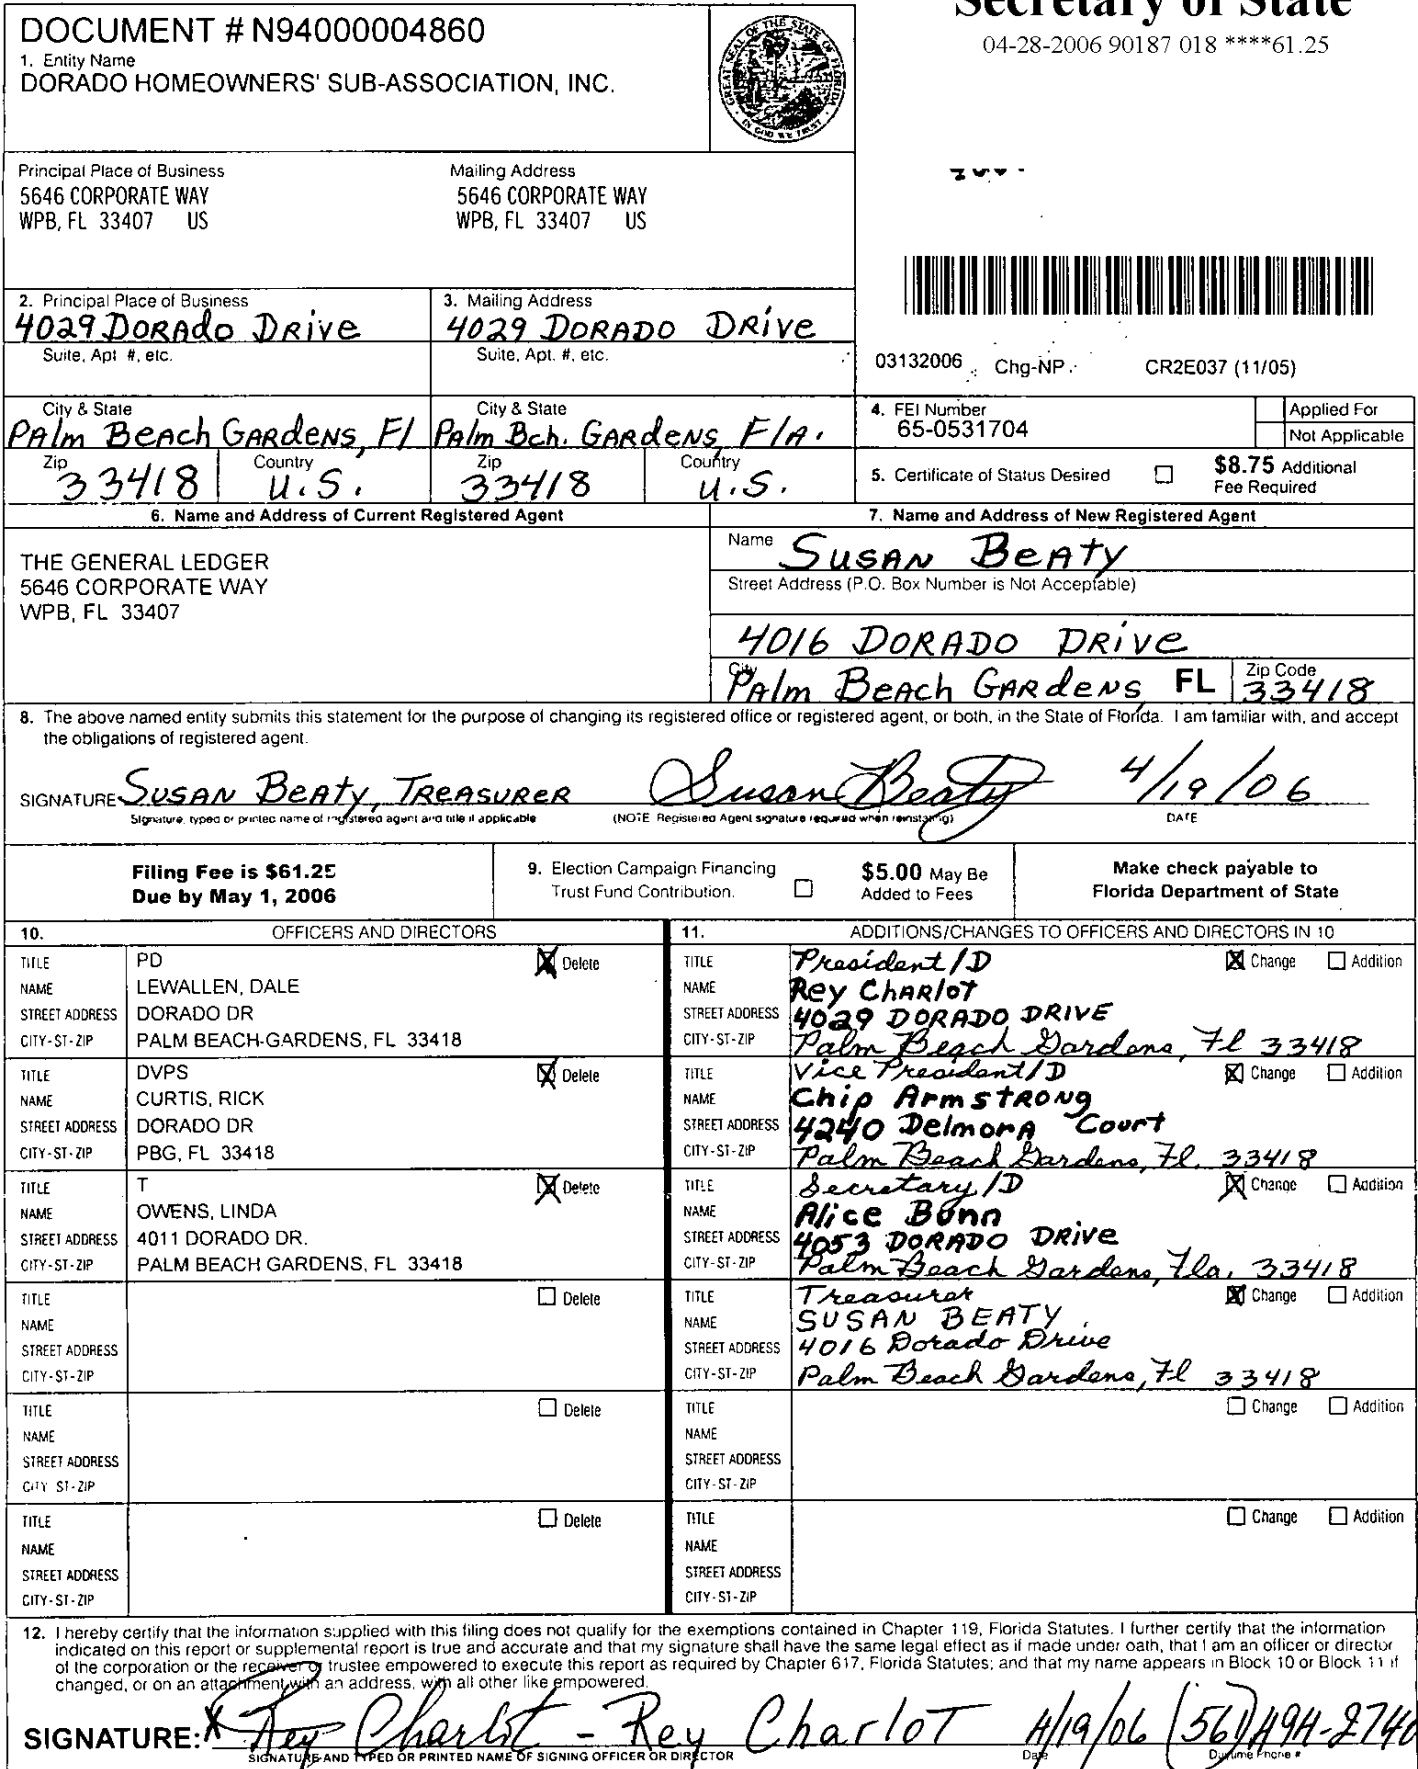 Secretary of State
04-28-2006 90187 018 ****61.25
DOCUMENT # N94000004860
1. Entity Name
DORADO HOMEOWNERS' SUB-ASSOCIATION, INC.
GREAT SEAL OF THE STATE OF FLORIDA
IN GOD WE TRUST
Principal Place of Business
5646 CORPORATE WAY
WPB, FL 33407 US
Mailing Address
5646 CORPORATE WAY
WPB, FL 33407 US
2. Principal Place of Business
4029 DORADO DRIVE
Suite, Apt #, etc.
3. Mailing Address
4029 DORADO DRIVE
Suite, Apt. #, etc.
03132006 Chg-NP CR2E037 (11/05)
City & State
PALM BEACH GARDENS, Fl
City & State
PALM Bch. GARDENS, FlA.
Zip
33418
Country
U.S.
Zip
33418
Country
U.S.
4. FEI Number
65-0531704
Applied For
Not Applicable
5. Certificate of Status Desired
$8.75 Additional
Fee Required
6. Name and Address of Current Registered Agent
THE GENERAL LEDGER
5646 CORPORATE WAY
WPB, FL 33407
7. Name and Address of New Registered Agent
Name SUSAN BEATY
Street Address (P.O. Box Number is Not Acceptable)
4016 DORADO DRIVE
City PALM BEACH GARDENS FL Zip Code 33418
8. The above named entity submits this statement for the purpose of changing its registered office or registered agent, or both, in the State of Florida. I am familiar with, and accept
the obligations of registered agent.
SIGNATURE SUSAN BEATY, TREASURER Susan Beaty 4/19/06
Signature, typed or printed name of registered agent and title if applicable (NOTE Registered Agent signature required when reinstating) DATE
Filing Fee is $61.25
Due by May 1, 2006
9. Election Campaign Financing
Trust Fund Contribution.
$5.00 May Be
Added to Fees
Make check payable to
Florida Department of State
10. OFFICERS AND DIRECTORS
TITLE PD X Delete
NAME LEWALLEN, DALE
STREET ADDRESS DORADO DR
CITY-ST-ZIP PALM BEACH-GARDENS, FL 33418
TITLE DVPS X Delete
NAME CURTIS, RICK
STREET ADDRESS DORADO DR
CITY-ST-ZIP PBG, FL 33418
TITLE T X Delete
NAME OWENS, LINDA
STREET ADDRESS 4011 DORADO DR.
CITY-ST-ZIP PALM BEACH GARDENS, FL 33418
TITLE Delete
NAME
STREET ADDRESS
CITY-ST-ZIP
TITLE Delete
NAME
STREET ADDRESS
CITY ST-ZIP
TITLE Delete
NAME
STREET ADDRESS
CITY-ST-ZIP
11. ADDITIONS/CHANGES TO OFFICERS AND DIRECTORS IN 10
TITLE President/D X Change Addition
NAME Rey CHARlOT
STREET ADDRESS 4029 DORADO DRIVE
CITY-ST-ZIP Palm Beach Gardens, Fl 33418
TITLE Vice President/D X Change Addition
NAME Chip ARMSTRONG
STREET ADDRESS 4240 DelmorA Court
CITY-ST-ZIP Palm Beach Gardens, Fl. 33418
TITLE Secretary/D X Change Addition
NAME Alice Bunn
STREET ADDRESS 4053 DORADO DRIVE
CITY-ST-ZIP Palm Beach Gardens, Fla. 33418
TITLE Treasurer X Change Addition
NAME SUSAN BEATY
STREET ADDRESS 4016 Dorado Drive
CITY-ST-ZIP Palm Beach Gardens, Fl 33418
TITLE Change Addition
NAME
STREET ADDRESS
CITY-ST-ZIP
TITLE Change Addition
NAME
STREET ADDRESS
CITY-ST-ZIP
12. I hereby certify that the information supplied with this filing does not qualify for the exemptions contained in Chapter 119, Florida Statutes. I further certify that the information
indicated on this report or supplemental report is true and accurate and that my signature shall have the same legal effect as if made under oath, that I am an officer or director
of the corporation or the receiver or trustee empowered to execute this report as required by Chapter 617, Florida Statutes; and that my name appears in Block 10 or Block 11 if
changed, or on an attachment with an address, with all other like empowered.
SIGNATURE: X Rey Charlot - Rey CharloT 4/19/06 (561) 494-2740
SIGNATURE AND TYPED OR PRINTED NAME OF SIGNING OFFICER OR DIRECTOR Date Daytime Phone #